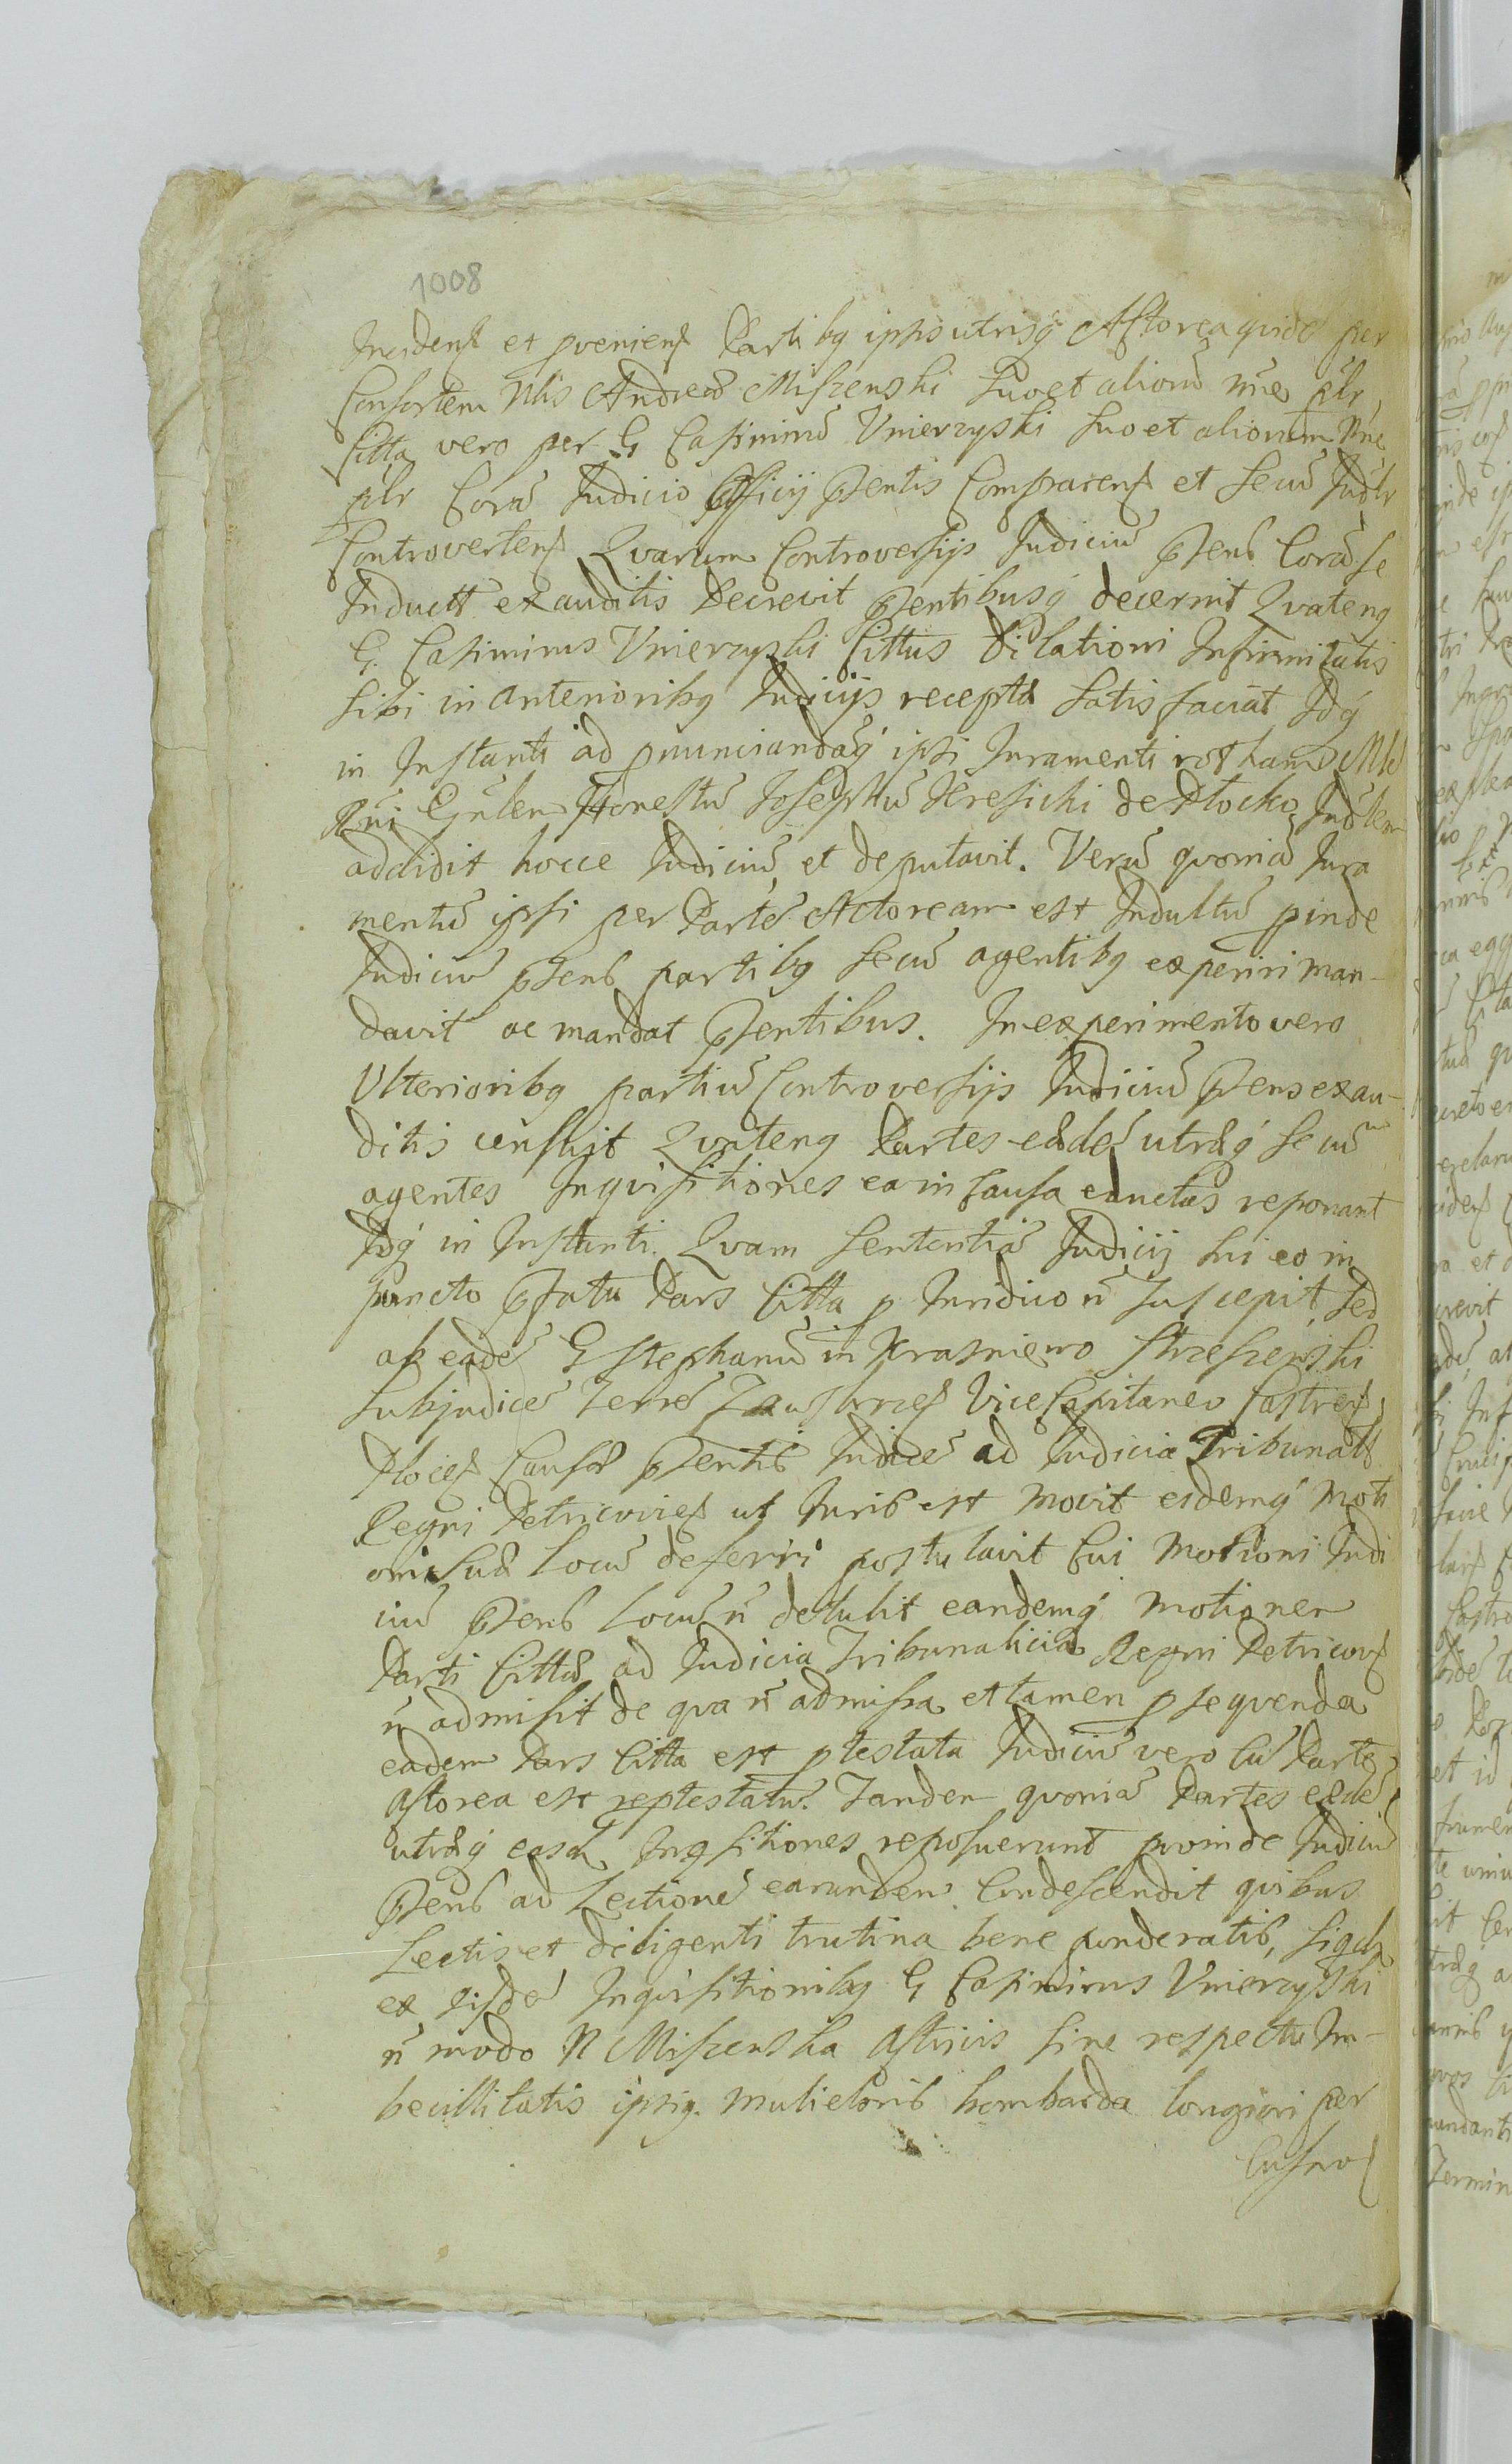 1008
Incidens et pveniens Partibq ipsis utrisq́ Actorea quidē per
Consortem Nlis Andreā Miszenski suo et aliorū nīe plr
Citta vero per G Casimirū Vnierzyski suo et aliorum nīe
plr Corā Judicio Officij pſentis Comparens et secū Judlr
Controvertens Qvarum Controversijs Judiciū pſens Corā se
Inductt exauditis Decrevit pſentibusq́ decernit Qvatenq
G. Casimirus Vnierzyski Cittus Dilationi Infirmitatis
sibi in anterioribq Judicijs recepta satisfaciat Idq́
in Instanti ad pnunciandāq́ ipsi Juramenti rotham Mlē
Rni Gnlem Honestū Josephū Kresicki de Plocko Judlem
addidit hocce Judiciū et deputavit. Verū qvoniā Jura
mentū ipsi per Partē Actoream est Indultū pinde
Judiciū pſens partibq secū agentibq experiri man-
davit ac mandat pſentibus. In experimento vero
Vlterioribq partiū Controversijs Judiciū pſens exau-
ditis censuit Qvatenq Partes eædē utræq́ secū
agentes Inqvisitiones ea in Causa eductas reponant
Idq́ in Instanti. Qvam sententiā Judicij sui eo in
puncto pfata Pars Citta p Juridico n̄ suscepit, sed
ab eadē G Stephanū in Krasniewo Strzeszewski
Subjudicē Terrē Zawskrzes ViceCapitaneo Castrens
Plocens Causæ pſentis Judicē ad Judicia Tribunalt
Regni Petricovies ut Juris est movit eidemq́ Moti
oni suæ locū deferri postulavit Cui Motioni Judi
ciū pſens locū n̄ detulit eandemq́ Motionem
Parti Cittæ ad Judicia Tribunalicia Regni Petricovs
n̄ admisit de qva n̄ admissa et tamen p seqvenda
eadem Pars Citta est ptestata Judiciū vero cū Parte
Actorea est reptestatū. Tandem qvoniā Partes eædē
utræq́ easd Inqsitiones reposuerunt proinde Judiciū
pſens ad Lectionē earundem Condescendit qvibus
Lectis et diligenti trutina bene ponderatis, siqdē
ex eisdē Inqvisitionibq G Casimirus Vnierzyski
n̄ modo N Miszenska Actricis sine respectu Im-
becillitatis ipsiq. muliebris bombarda longiori per